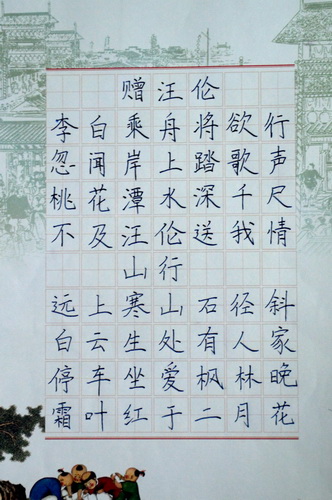 赠汪伦
李白乘舟将欲行
忽闻岸上踏歌声
桃花潭水深千尺
不及汪伦送我情
山行
远上寒山石径斜
白云生处有人家
停车坐爱枫林晚
霜叶红于二月花